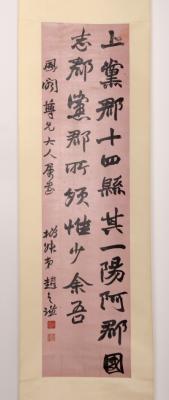 上黨郡十四縣其一陽阿郡國
志郡黨郡所領惟少余吾
大人屬書
弟趙之謙